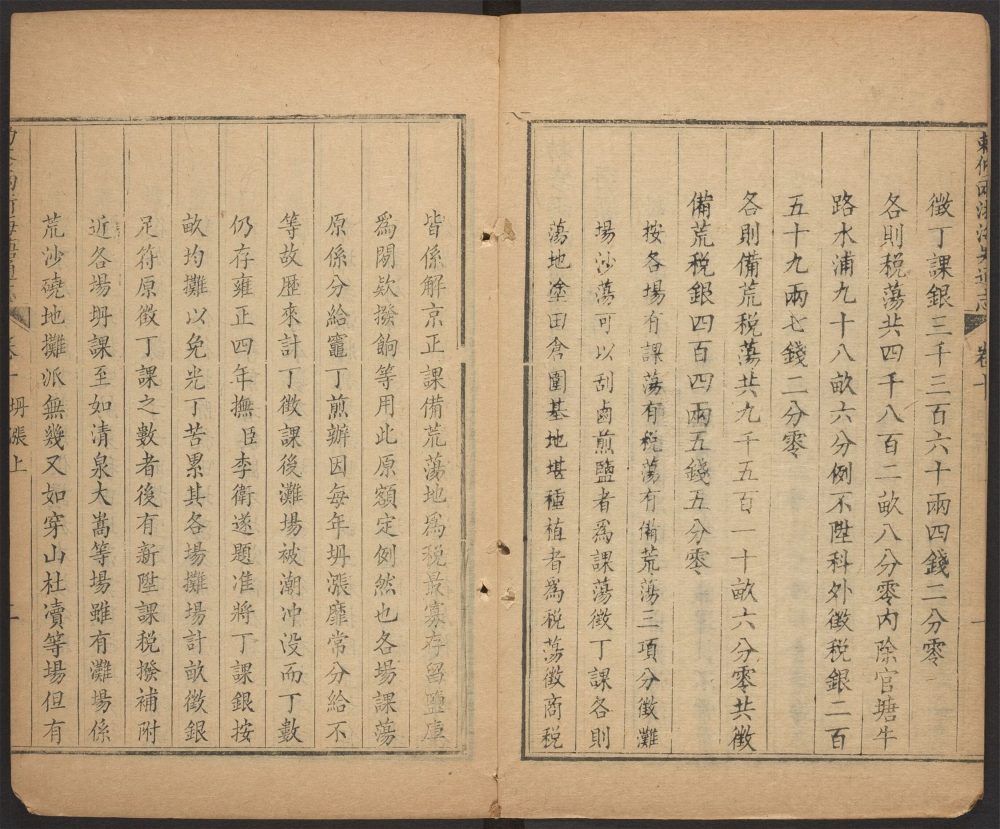 敕修兩浙海鹽通志 卷十 一
徵丁課銀三千三百六十兩四錢二分零
各則税蕩共四千八百二畝八分零内除官塘牛
路水浦九十八畝六分例不陞科外徵税銀二百
五十九兩七錢二分零
各則備荒税蕩共九千五百一十畝六分零共徵
備荒税銀四百四兩五錢五分零
按各場有課蕩有税蕩有備荒蕩三項分徵灘
場沙蕩可以刮鹵煎鹽者爲課蕩徵丁課各則
蕩地塗田倉圍基地堪種植者爲税蕩徵商税
皆係解京正課備荒蕩地爲税最寡存留鹽庫
爲閒欵撥餉等用此原額定例然也各場課蕩
原係分給竈丁煎辦因每年坍漲靡常分給不
等故歴來計丁徵課後灘場被潮冲没而丁數
仍存雍正四年撫臣李衛遂題准將丁課銀按
畝均攤以免光丁苦累其各場攤場計畝徵銀
足符原徵丁課之數者後有新陞課税撥補附
近各場坍課至如清泉大嵩等場雖有灘場係
荒沙磽地攤派無幾又如穿山杜瀆等場但有
坍漲上 一